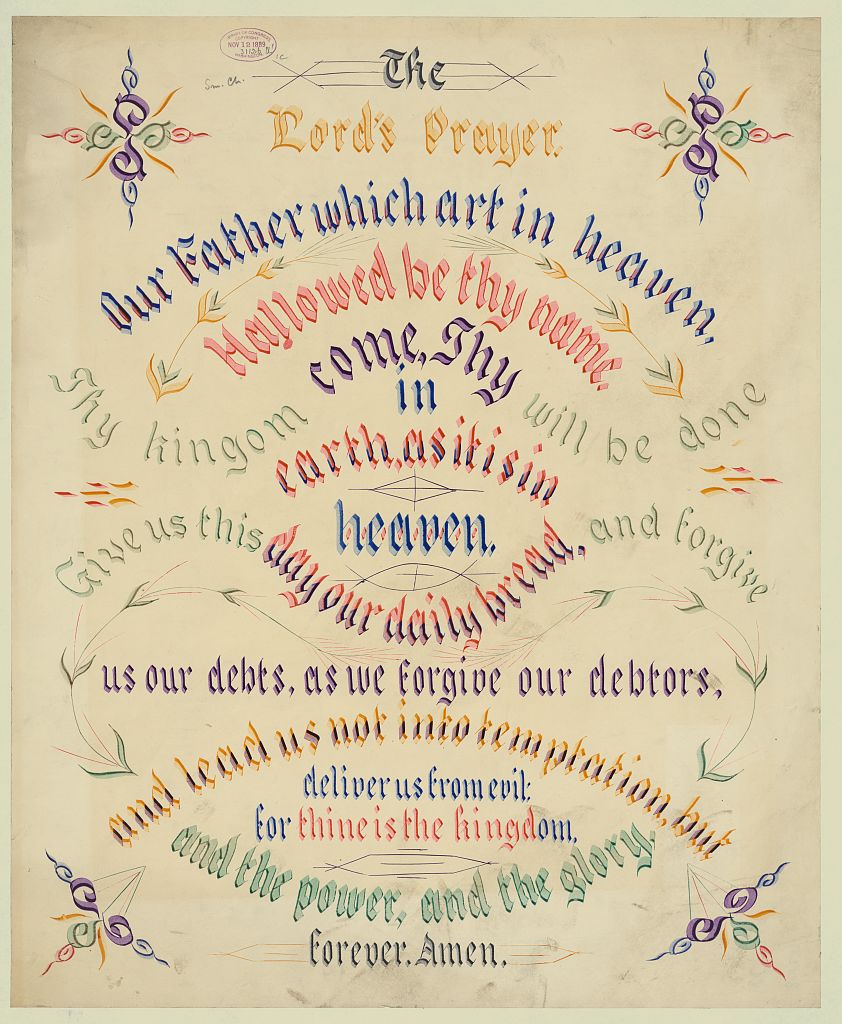 LIBRARY OF CONGRESS
COPYRIGHT
NOV 12 1889
WASHINGTON
The
Lord's Prayer.
Our Father which art in heaven,
Hallowed be thy name.
Thy kingom come, Thy will be done
in
earth, as it is in
heaven.
Give us this day our daily bread, and forgive
us our debts, as we forgive our debtors,
and lead us not into temptation, but
deliver us from evil;
for thine is the kingdom,
and the power, and the glory,
forever. Amen.